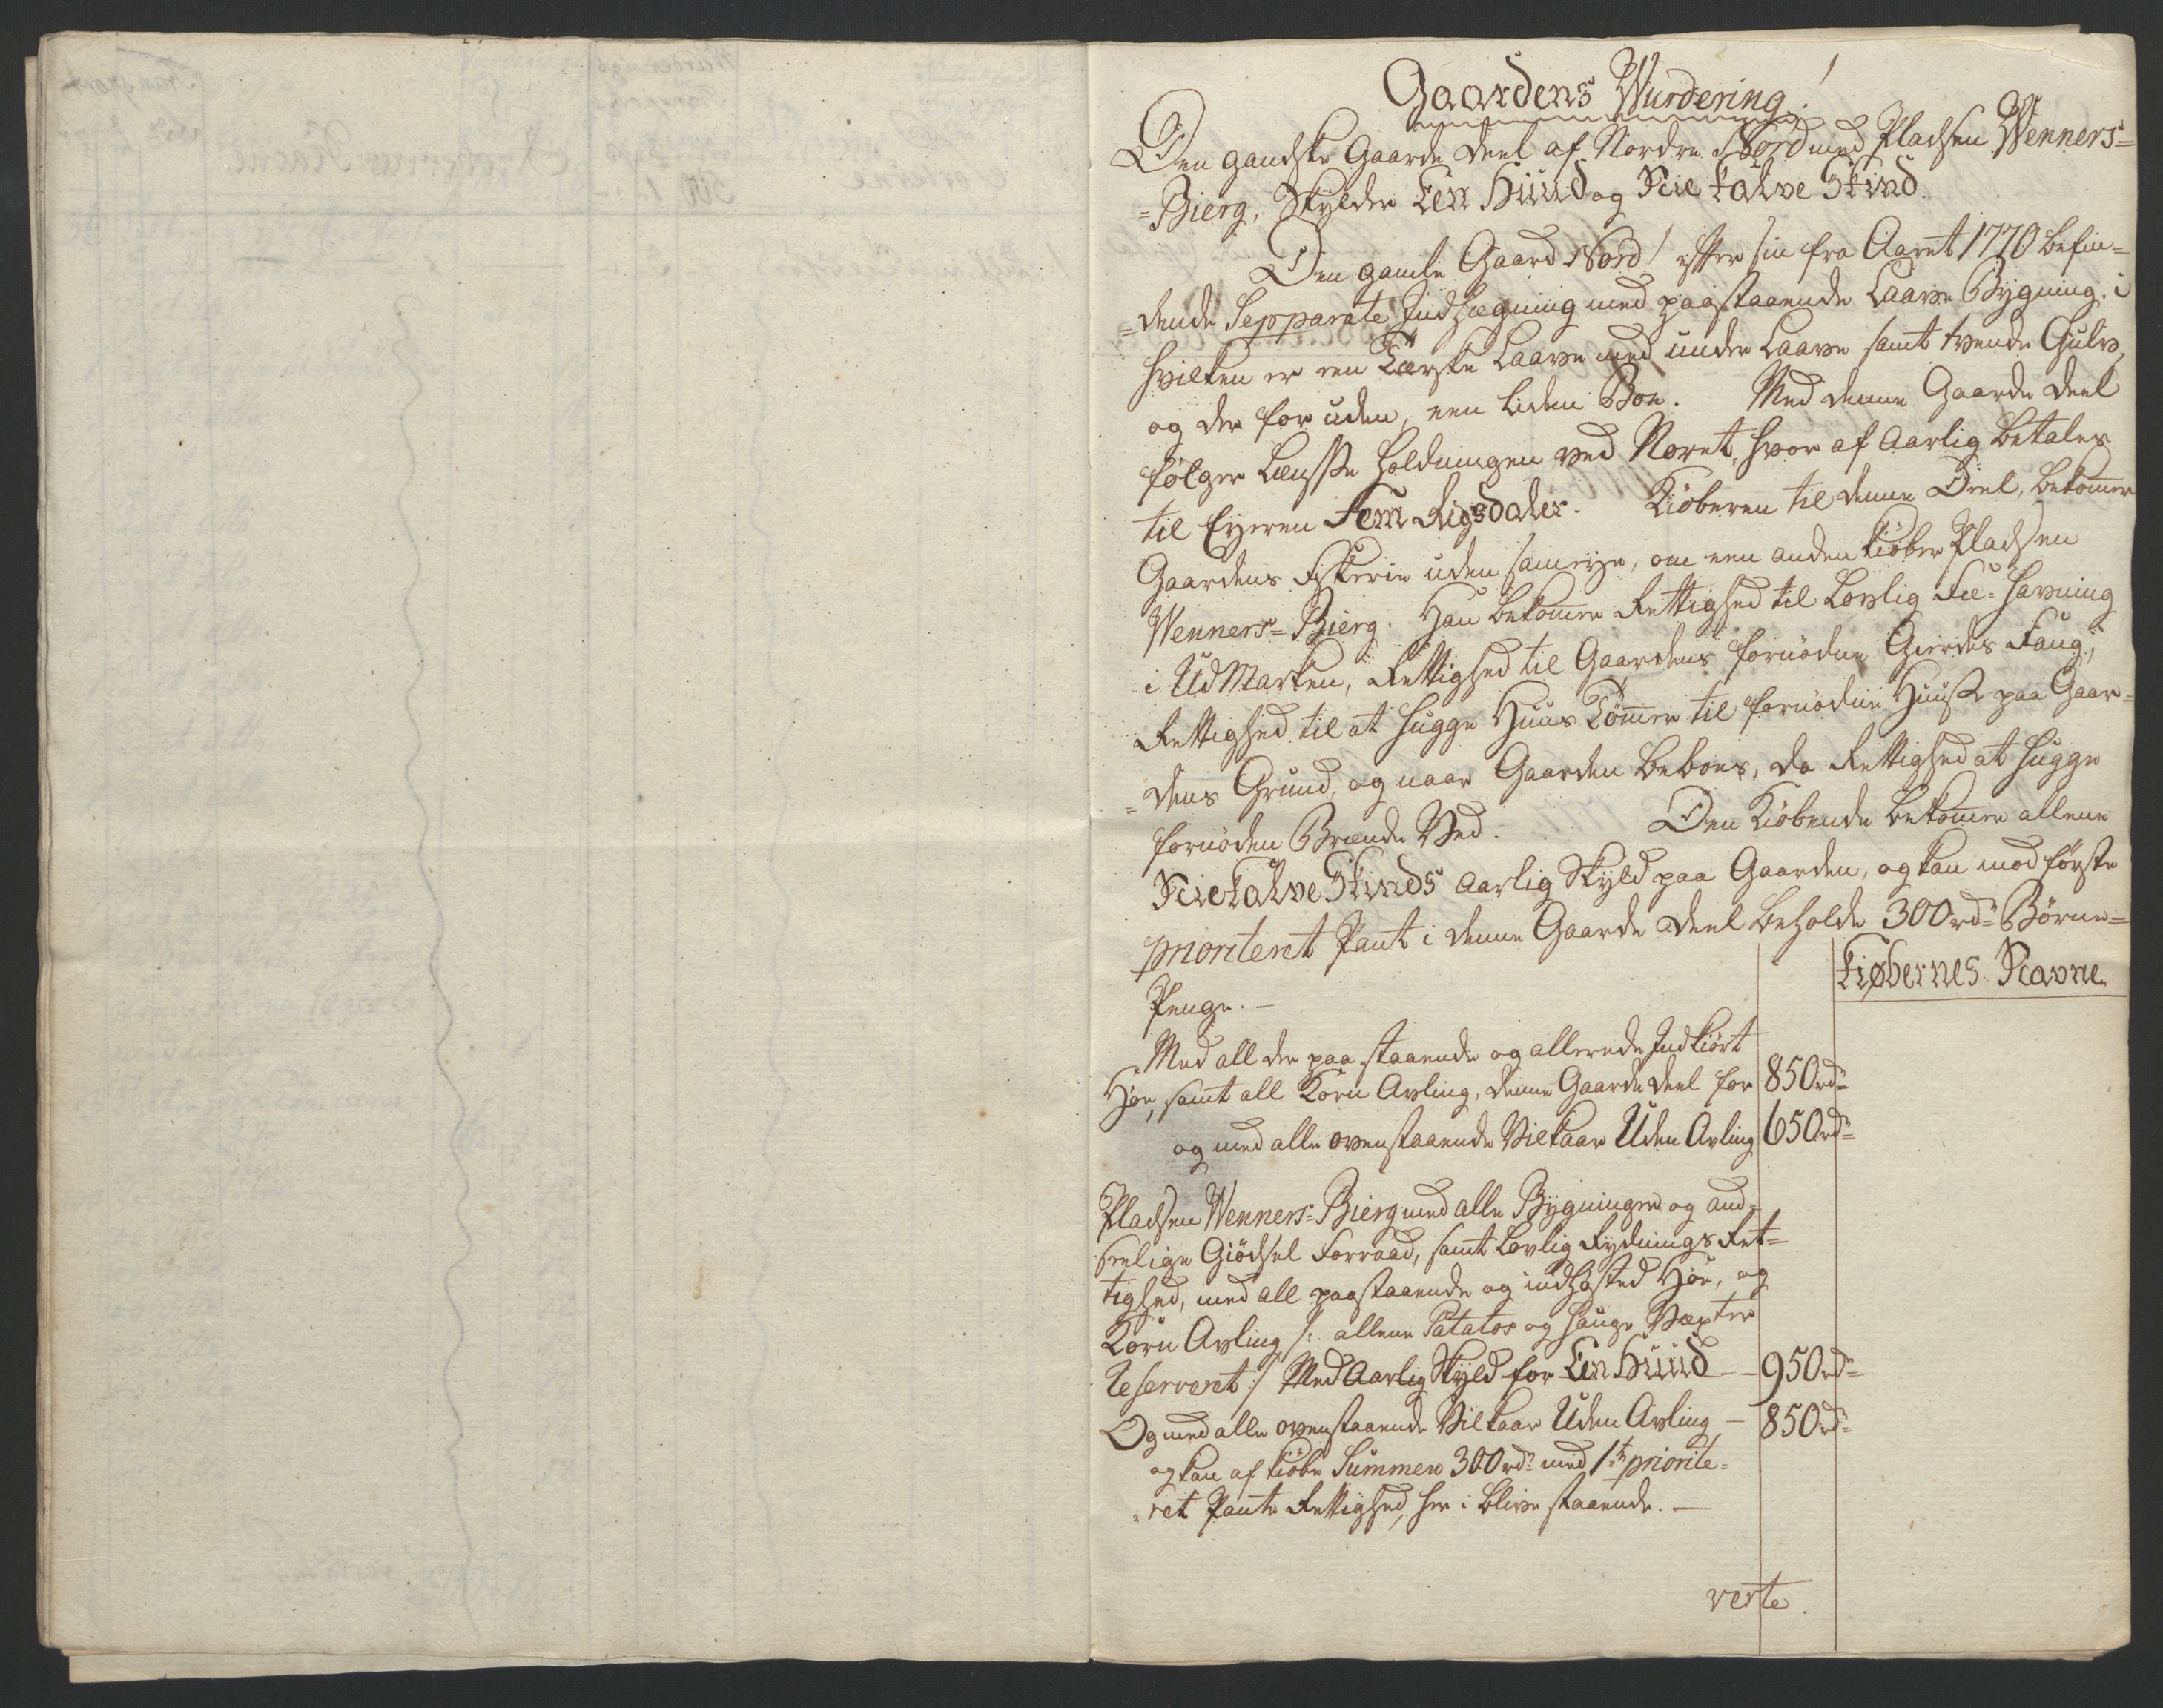 Gaardens Wurdering!
Den gandske Gaarde Deel af Nordre Noer med Pladsen Wenners=
=Bierg, skylder Een Huud og Nie Kalve Skind.
Den gamle Gaard Nord! efter sin fra Aaret 1770 befin=
=dende Sepparate Indhægning med paastaaende Laave Bygning, i
hvilken er een Tærske Laave med under Laave samt tvende Gulv,
og der for uden, een liden Boe. Med denne Gaarde Deel
følger Lænsse holdningen ved Noret, hvor af aarlig betales
til Eyeren Fem Rigsdaler. Kiøberen til denne Deel, bekommer
Gaardens Fiskerie uden sameye, om een anden kiøber Pladsen
Wenners=Bierg. Han bekommer Rettighed til Lovlig Fæ=havning
i UdMarken, Rettighed til Gaardens fornødne Gierdes Fang,
Rettighed til at hugge Huus Tømmer til fornødne Huuse paa Gaar=
=dens Grund, og naar Gaarden beboes, da Rettighed at hugge
fornøden Brænde Ved. Den Kiøbende bekommer allene
Nie Kalve Skinds aarlig Skyld paa Gaarden, og kan mod første
prioriteret Pant i denne Gaarde Deel beholde 300 rdr Børne=
Penge.—
Kiøbernes Navne
Med all den paa staaende og allerede Indkiørt
Høe, samt all Korn Avling, denne Gaarde Deel for 850 rdr
og med alle ovenstaaende Vilkaar Uden Avling 650 rdr
Pladsen Wenners=Bierg med alle Bygninger og and=
seelige Giødsel Forraad, samt Lovlig Rydnings Ret=
tighed, med all paastaaende og indhøsted Høe, og
Korn Avling /: allene Potatos og hauge Vexter
Reserveret :/ Med Aarlig Skyld for Een Huud — 950 rdr
Og med alle ovenstaaende Vilkaar Uden Avling — 850 rdr
og kan af kiøbe Summen 300 rdr med 1te priorite=
=ret Pante Rettighed, her i blive staaende.—
verte.